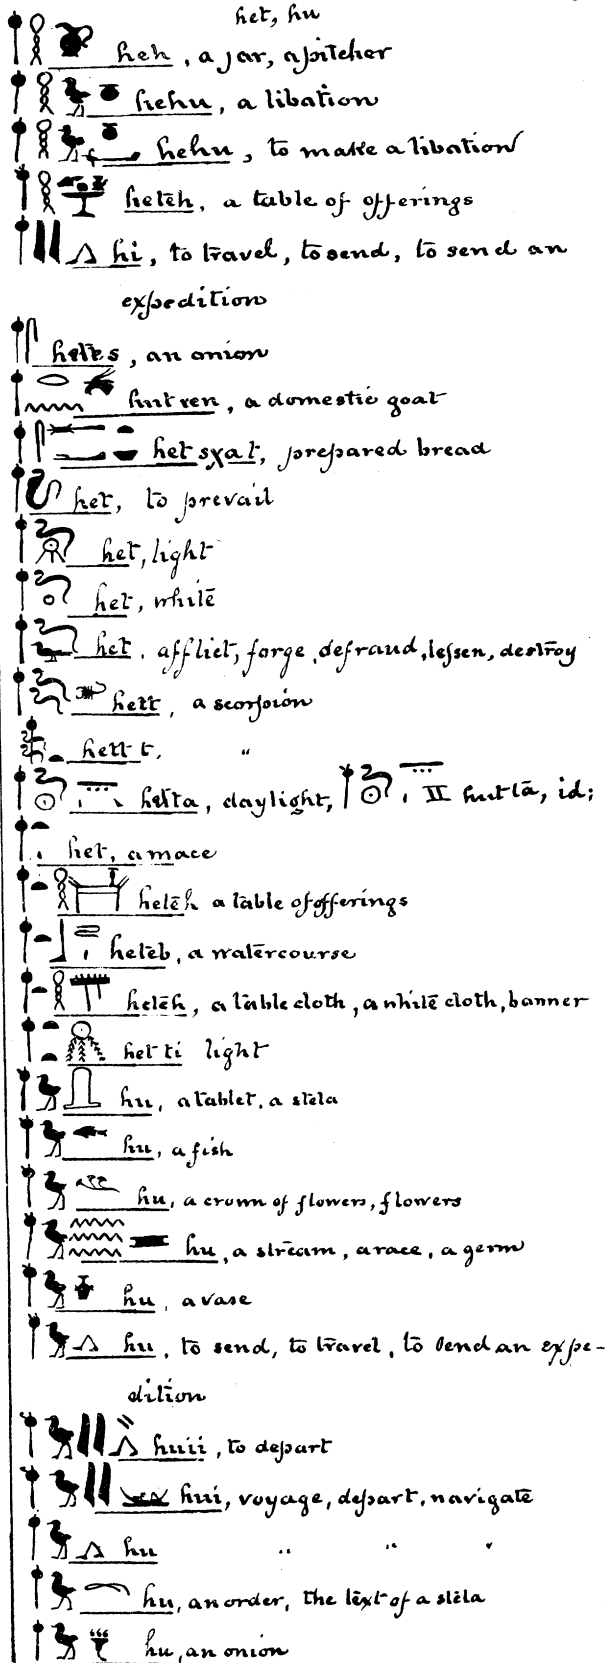 het, hu
heh, a jar, a pitcher
hehu, a libation
hehu, to make a libation
heteh, a table of offerings
hi, to travel, to send, to send an
expedition
hetes, an onion
hutren, a domestic goat
het sχat, prepared bread
het, to prevail
het, light
het, white
het, afflict, forge, defraud, lessen, destroy
hett, a scorpion
hett t, "
hetta, daylight, huttā, id;
het, a mace
heteh a table of offerings
heteb, a watercourse
heteh, a table cloth, a white cloth, banner
het ti light
hu, a tablet, a stela
hu, a fish
hu, a crown of flowers, flowers
hu, a stream, a race, a germ
hu, a vase
hu, to send, to travel, to send an expe-
dition
huii, to depart
hui, voyage, depart, navigate
hu " " "
hu, an order, the text of a stela
hu, an onion